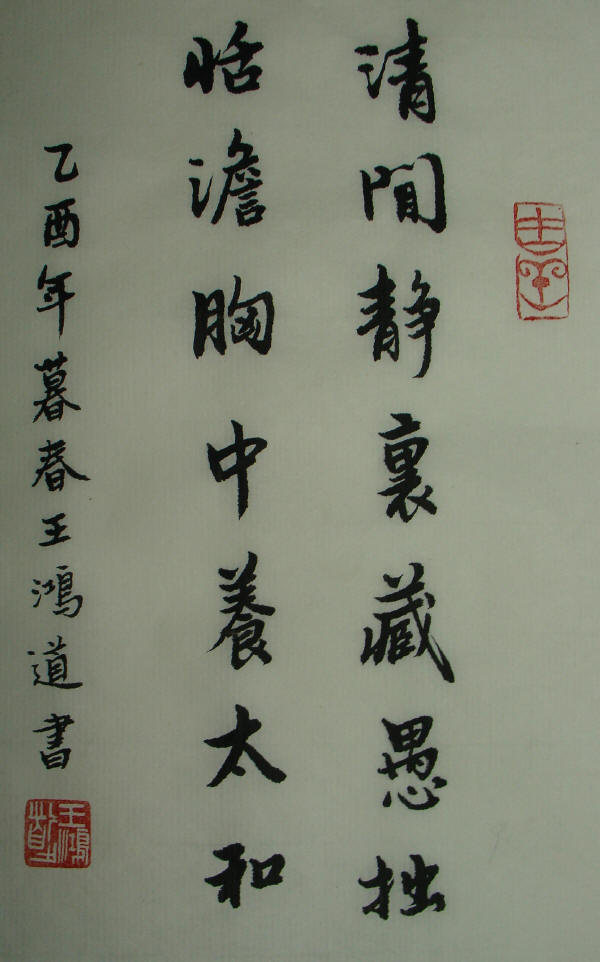 清閒静裏藏愚拙
恬澹胸中養太和
乙酉年暮春王鴻道書